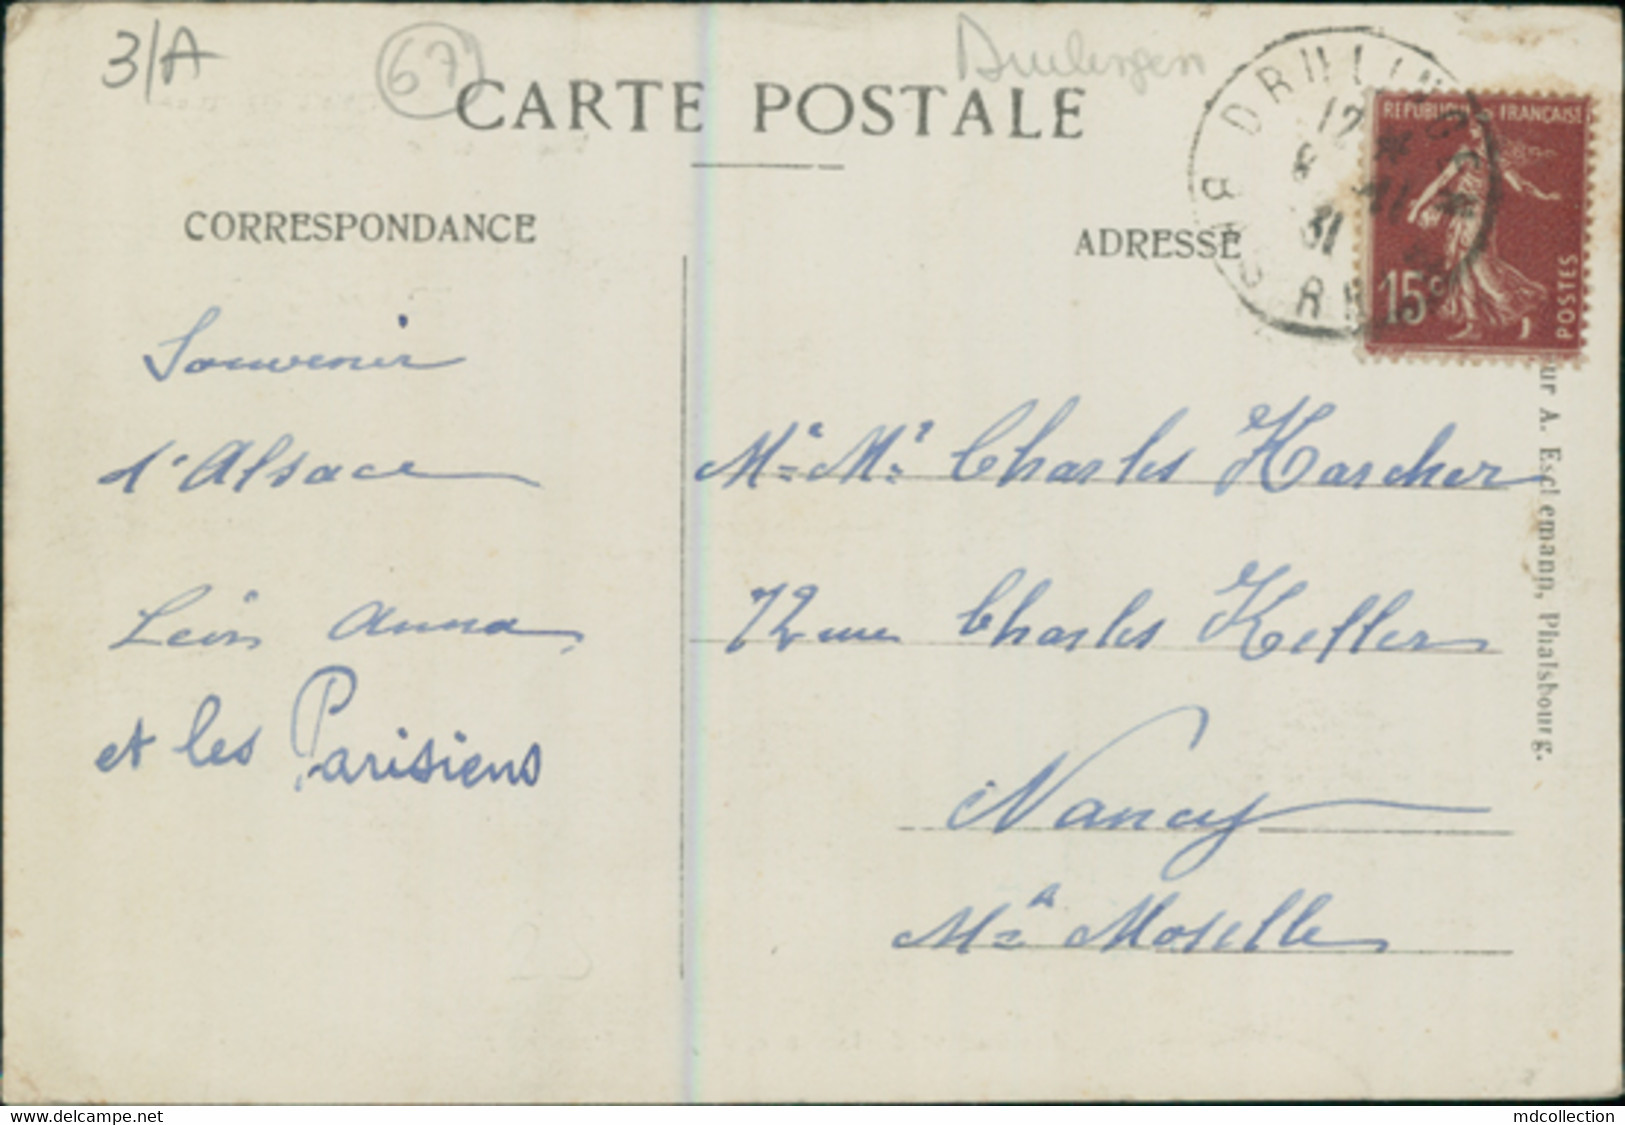 3/A
67
CARTE POSTALE
CORRESPONDANCE
ADRESSE
DRULINGEN
12
31
BAS RHIN
REPUBLIQUE FRANÇAISE
15c
POSTES
Souvenir
d'Alsace
Léon Anna
et les Parisiens
Mr Mme Charles Karcher
72 rue Charles Keller
Nancy
Mthe Moselle
A. Eschemann, Phalsbourg.
mdcollection
www.delcampe.net